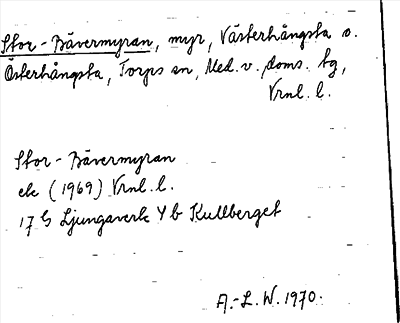 Stor-Bävermyran, myr, Västerhångsta o.
Österhångsta, Torps sn, Med. v. doms. tg,
Vrnl. l.
Stor-Bävermyran
ek (1969) Vrnl. l.
17 G Ljungaverk 4 b Kullberget
A.-L. W. 1970.